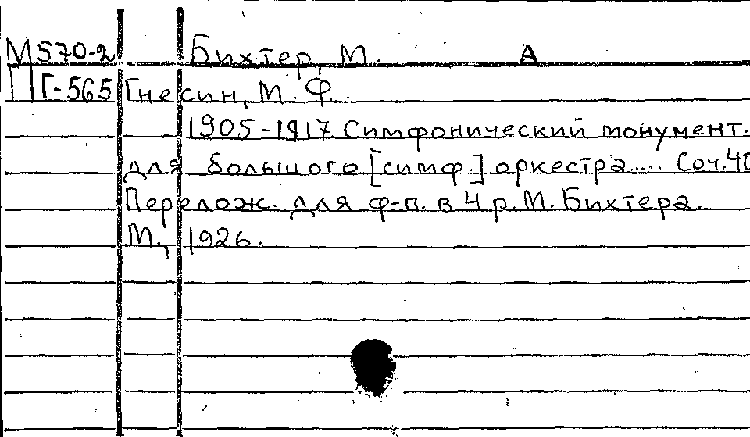 М570-2 Бихтер, М. А
Г-565 Гнесин, М. Ф.
1905-1917. Симфонический монумент.
для большого [симф.] оркестра.... Соч. 40
Перелож. для ф-п. в 4 р. М. Бихтера.
М., 1926.